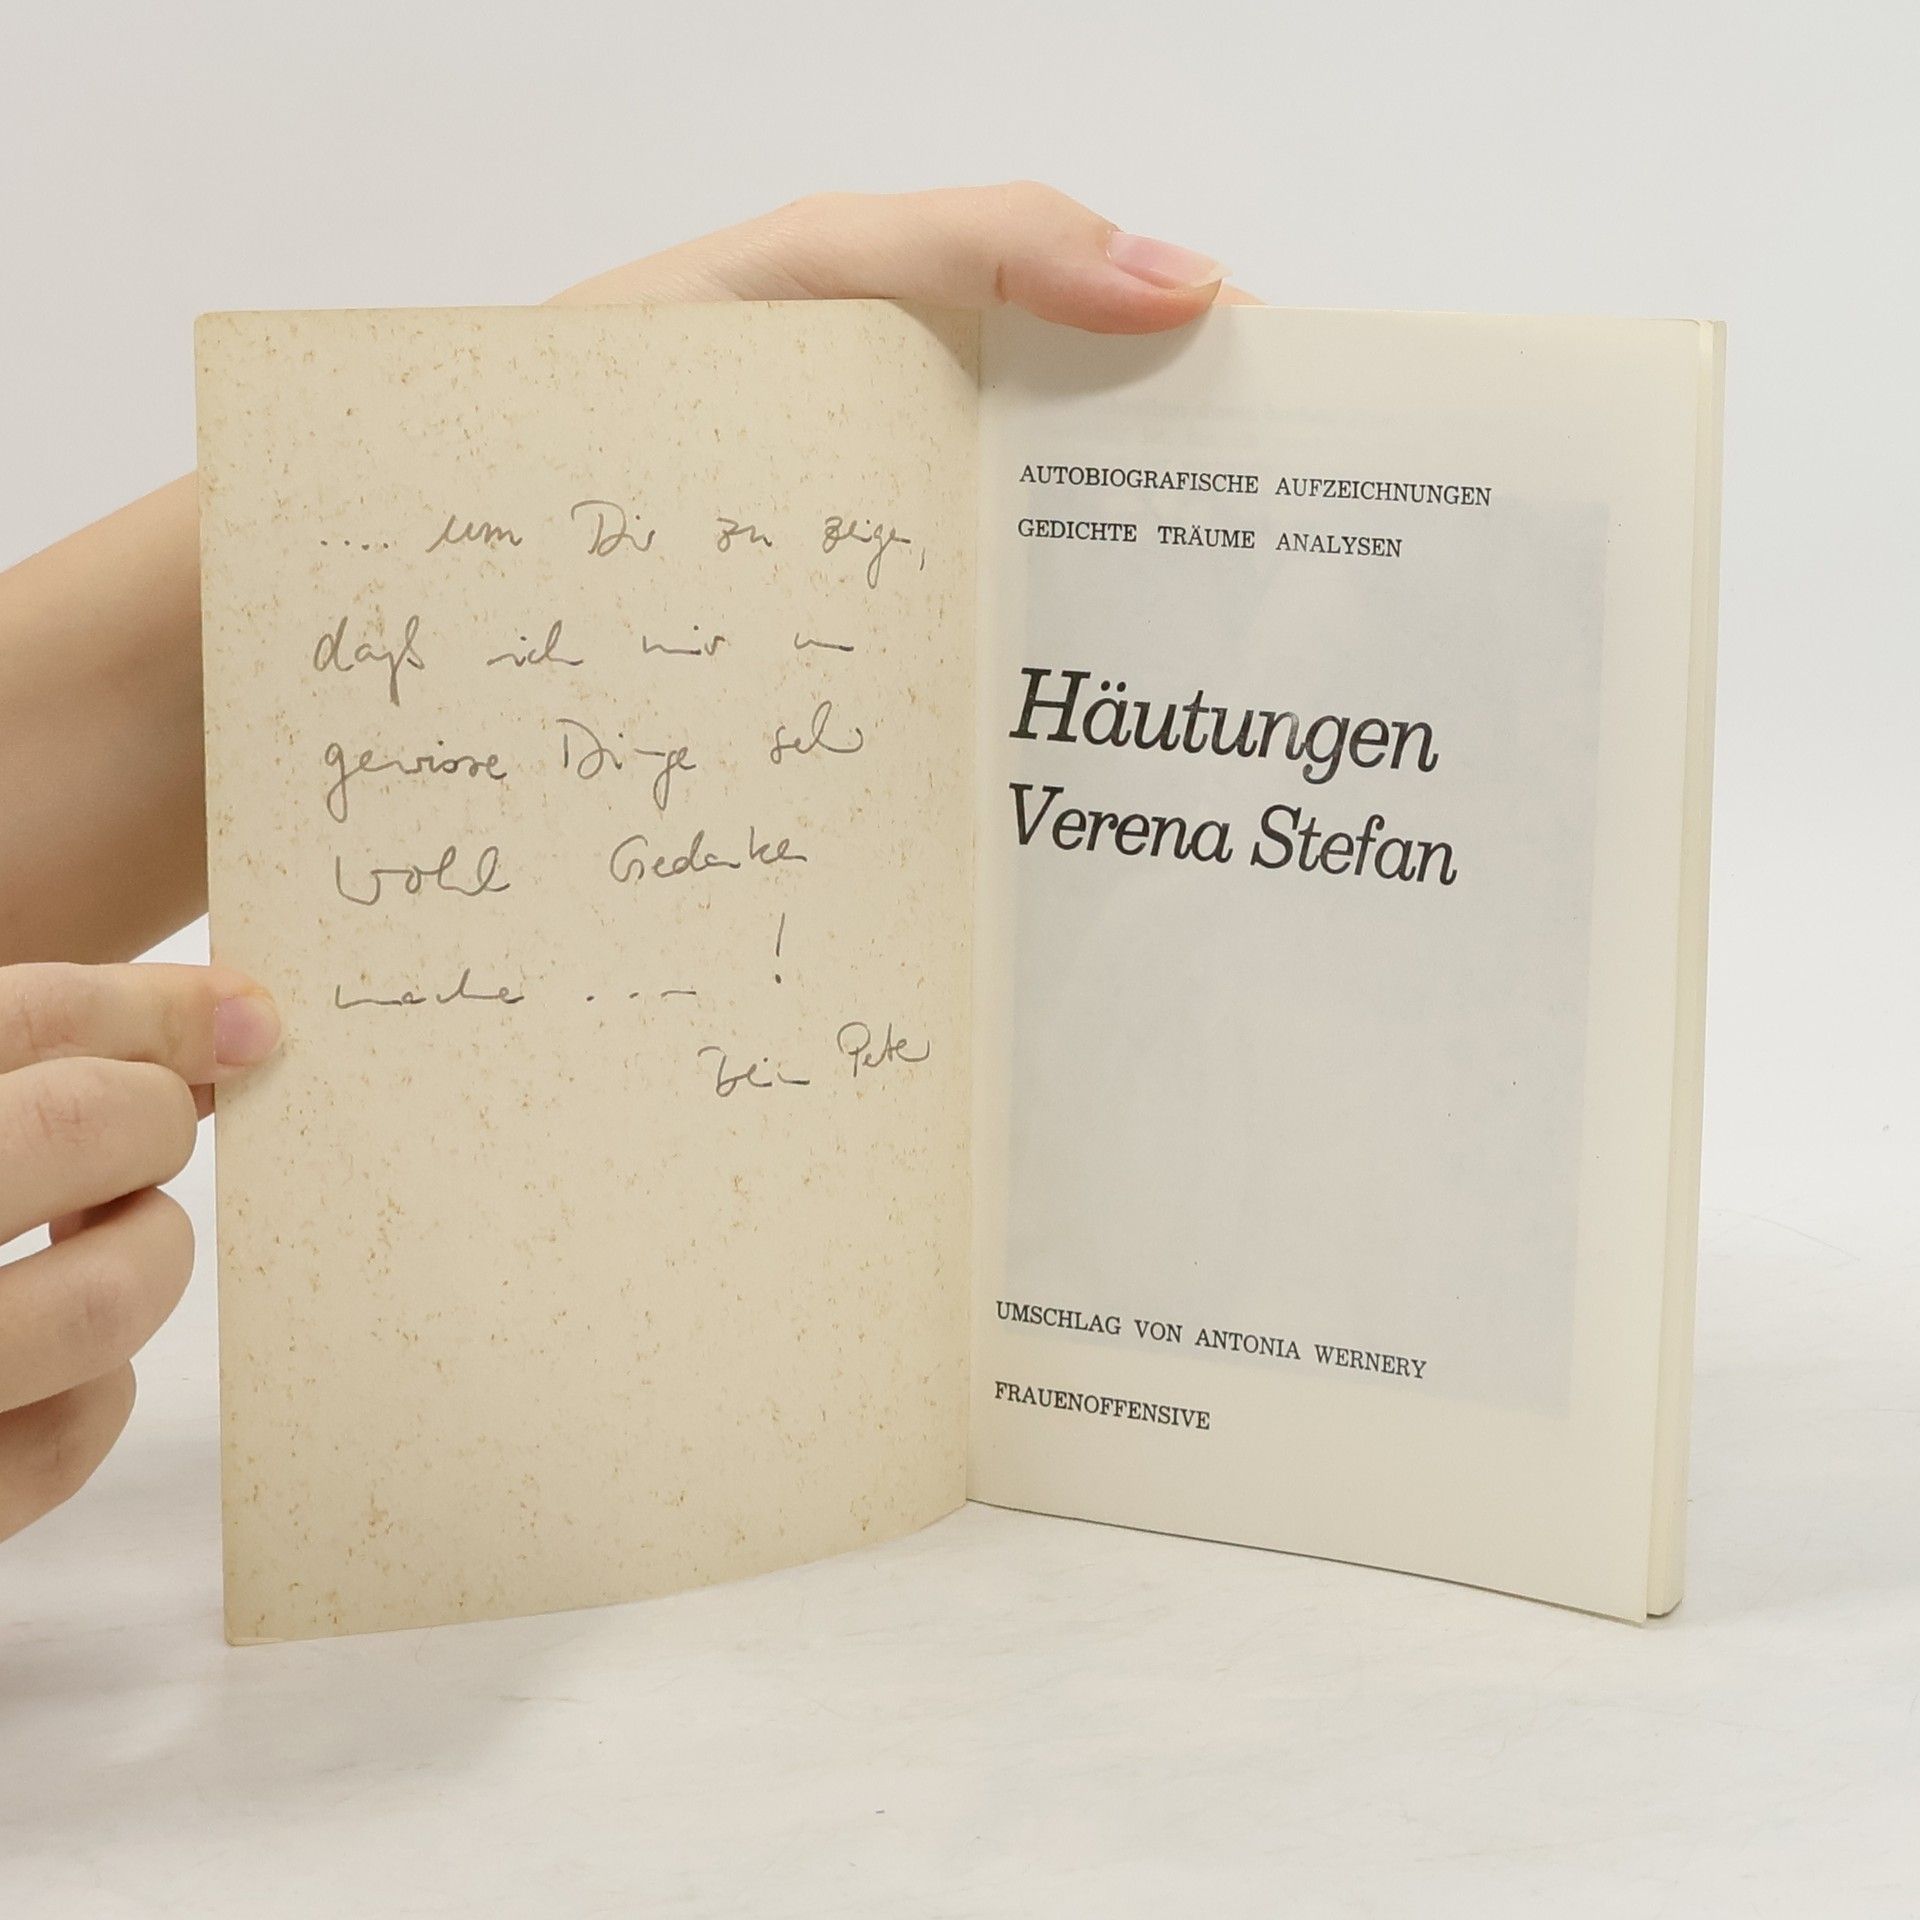 .... um Dir zu zeigen,
daß ich mir um
gewisse Dinge sehr
wohl Gedanken
mache ... !
Dein Peter
AUTOBIOGRAFISCHE AUFZEICHNUNGEN
GEDICHTE TRÄUME ANALYSEN
Häutungen
Verena Stefan
UMSCHLAG VON ANTONIA WERNERY
FRAUENOFFENSIVE